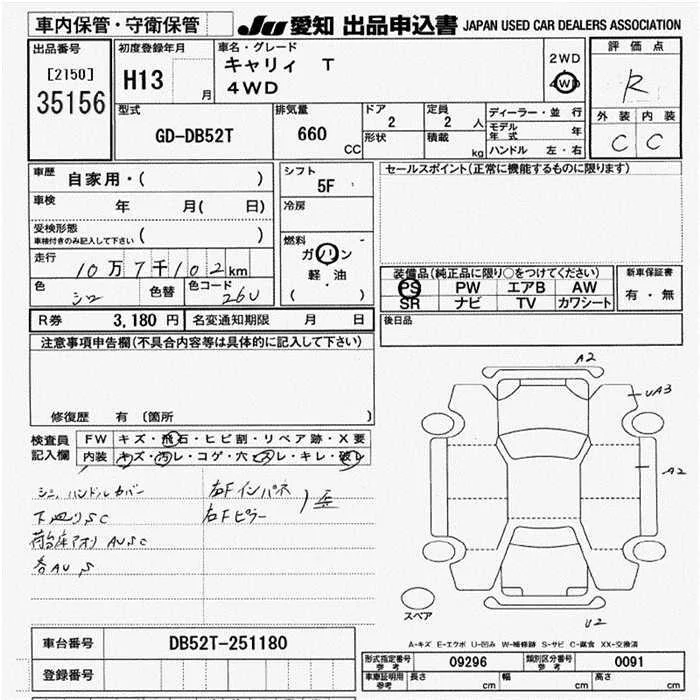 車内保管・守衛保管
JU 愛知 出品申込書 JAPAN USED CAR DEALERS ASSOCIATION
出品番号
[2150]
35156
初度登録年月
H13
月
車名・グレード
キャリィ T
4WD
2WD
4WD
評価点
R
外装 内装
C C
型式
GD-DB52T
排気量
660
CC
ドア
2
定員
2 人
形状
積載
kg
ディーラー・並 行
モデル年式 年
ハンドル 左・右
車歴 自家用・( )
車検 年 月( 日)
受検形態
車検付きのみ記入して下さい ( )
走行 10万7千102km
色 シロ 色替 色コード 26U
シフト
5F
冷房
燃料
ガソリン
軽・油
( )
セールスポイント(正常に機能するものに限ります)
装備品(純正品に限り○をつけてください)
PS PW エアB AW
SR ナビ TV カワシート
新車保証書
有・無
R券 3,180 円 名変通知期限 月 日
後日品
注意事項申告欄(不具合内容等は具体的に記入して下さい)
修復歴 有 [箇所 ]
検査員記入欄
FW キズ・飛石・ヒビ割・リペア跡・X要
内装 キズ・汚レ・コゲ・穴・スレ・キレ・破レ
シミ, ハンドルカバー
右Fインパネ
下廻りSC
右Fピラー
AUSC
A2
UA3
A2
U2
スペア
A-キズ E-エクボ U-凹み W-補修跡 S-サビ C-腐食 XX-交換済
車台番号 DB52T-251180
登録番号
形式指定番号参考 09296 類別区分番号参考 0091
車庫証明用参考 長さ cm 幅 cm 高さ cm